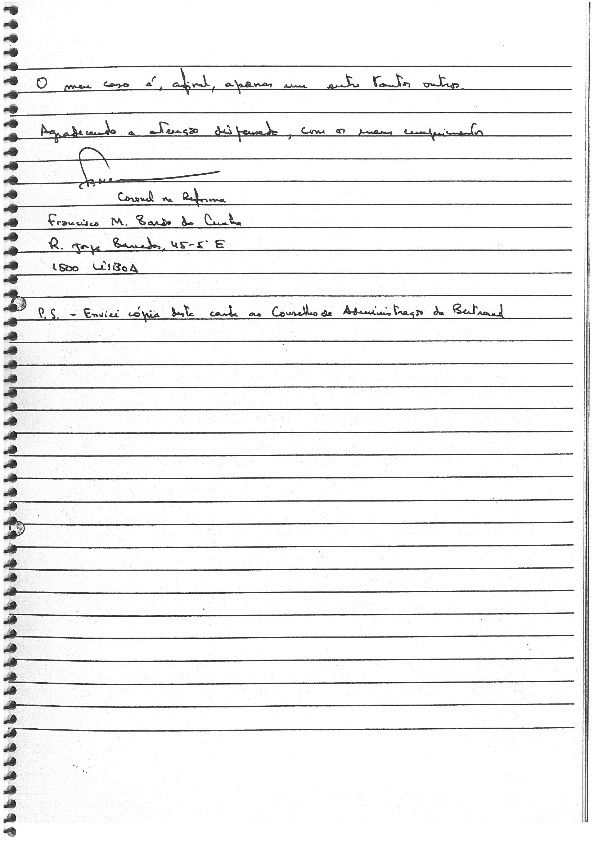 O meu caso é, afinal, apenas um entre tantos outros.
Agradecendo a atenção dispensada, com os meus cumprimentos
Coronel na Reforma
Francisco M. da Cunha
R. Jorge 45-5º E
1500 LISBOA
P.S. - Enviei cópia desta carta ao Conselho de Administração da Bertrand